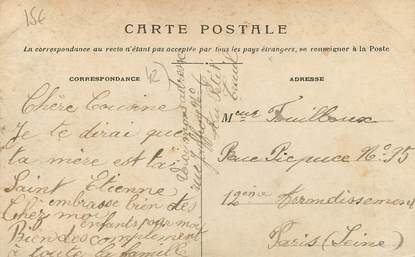 15€
CARTE POSTALE
La correspondance au recto n'étant pas acceptée par tous les pays étrangers, se renseigner à la Poste
CORRESPONDANCE
Chère Cousine
Je te dirai que
ta mère est à
Saint Etienne
embrasse bien tes
Chez moi
enfants pour moi
Bien des compliments
à toute la famille
mon adresse
rue
ADRESSE
Meur Fouilloux
Rue Picpuce No 95
12eme Arrondissement
Paris (Seine)